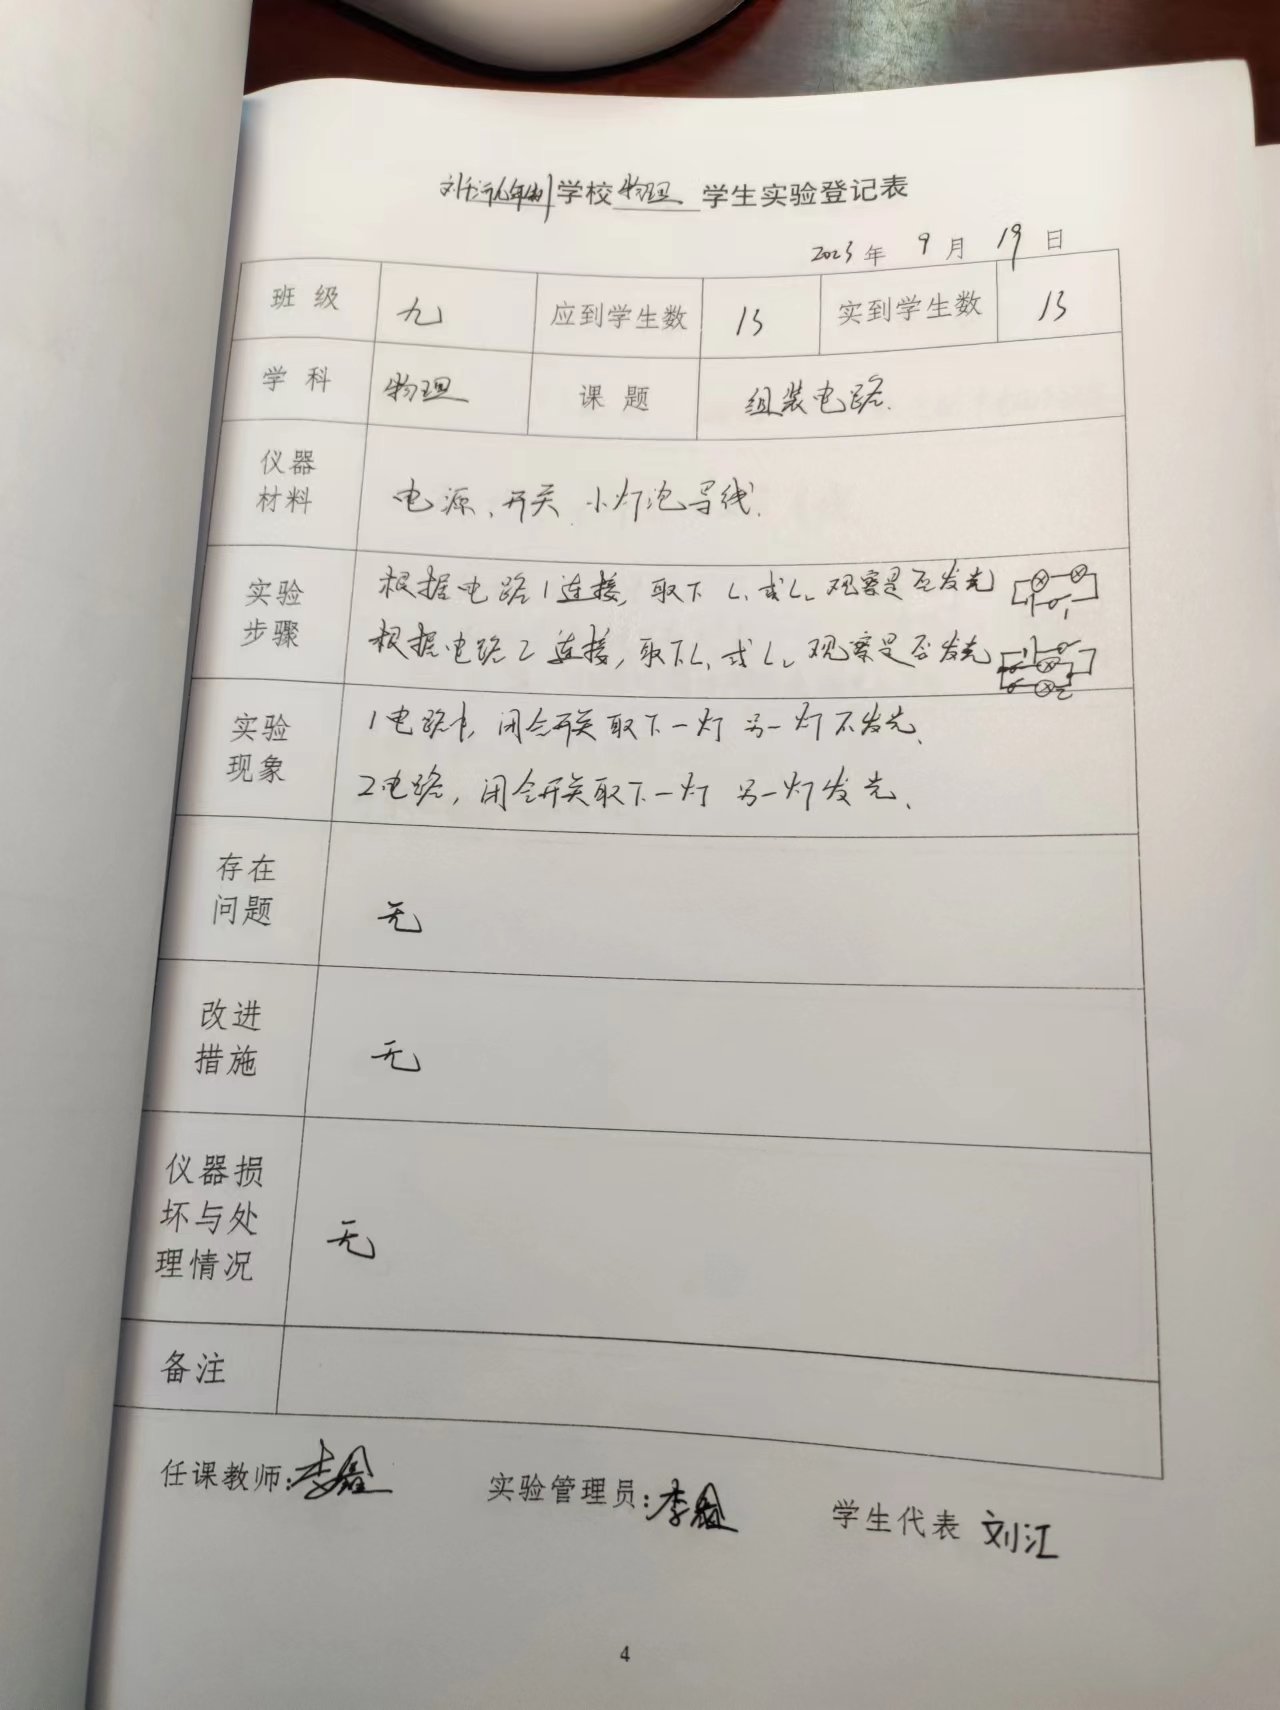 学校 物理 学生实验登记表
2023年 9月 19日
班级 九 应到学生数 13 实到学生数 13
学科 物理 课题 组装电路.
仪器
材料
电源、开关 小灯泡导线.
实验
步骤
根据电路1连接, 取下 L₁ 或L₂ 观察是否发光
根据电路2 连接, 取下L₁ 或L₂ 观察是否发光
实验
现象
1电路中, 闭合开关取下一灯 另一灯不发光.
2电路, 闭合开关取下一灯 另一灯发光.
存在
问题
无
改进
措施
无
仪器损
坏与处
理情况
无
备注
任课教师: 李鑫 实验管理员: 李鑫 学生代表 刘江
4